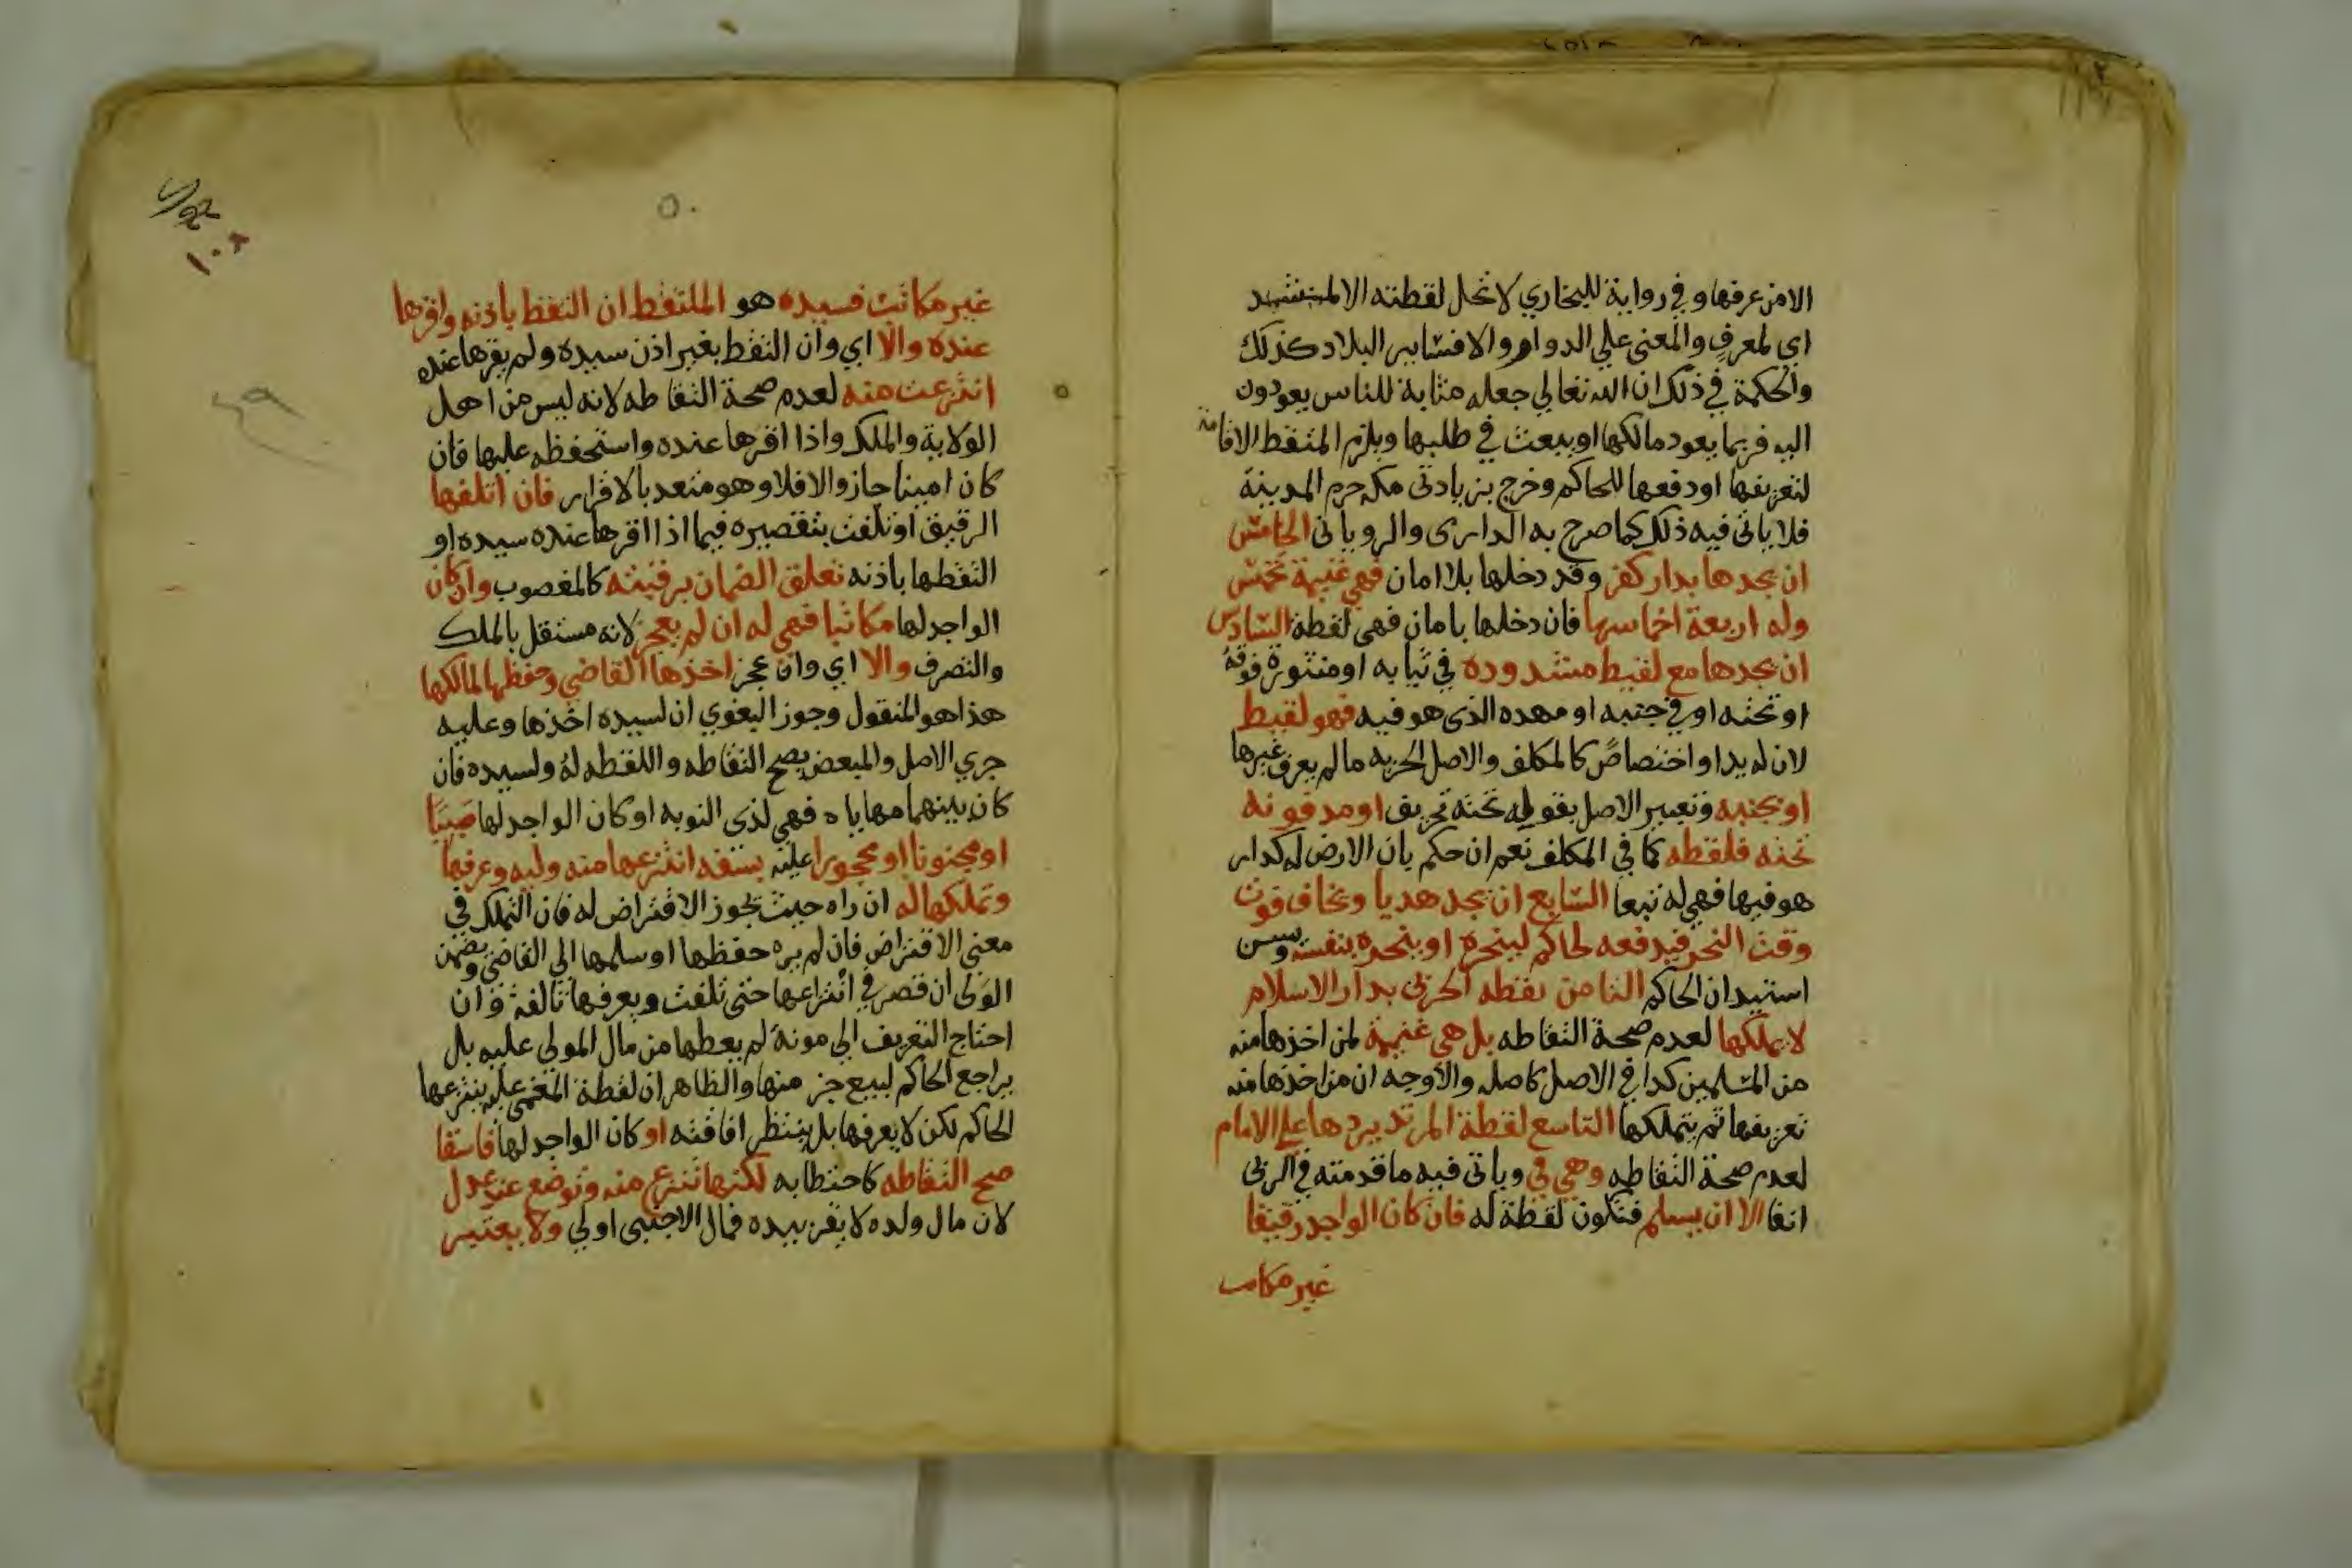 الا من عرفها وفي رواية للبخاري لا تحل لقطته الا لمنشد
اي لمعرف والمعنى علي الدوام والا فسّاير البلاد كذلك
والحكمة في ذلك ان الله تعالي جعله مثابة للناس يعودون
اليه فربما يعود مالكها او يبعث في طلبها ويلزم الملتقط الاقامة
لتعريفها او دفعها للحاكم وخرج بزيادتي مكه حرم المدينة
فلا ياتي فيه ذلك كما صرح به الدارمى والروياني الخامسّ
ان يجدها بدار كفر وقد دخلها بلا امان فهي غنيمة تخمسّ
وله اربعة اخماسها فان دخلها بامان فهي لقطة السّادس
ان يجدها مع لقيط مشدوده في ثيابه او منثورة فوقه
او تحته او في جنبه او مهده الذى هو فيه فهو لقيط
لان له يدا واختصاصً كالمكلف والاصل الحريه مالم يعرف غيرها
او بجنبه وتعبير الاصل بقوله تحته تحريف او مدفونه
تحته فلقطه كما في المكلف نعم ان حكم بان الارض له كدار
هو فيها فهي له تبعا السّابع ان يجد هديا ويخاف فوت
وقت النحر فيدفعه لحاكم لينحره او ينحره بنفسه وسن
استيدان الحاكم الثامن لقطه الحربي بدار الاسلام
لا يملكها لعدم صحة التقاطه بل هي غنيمة لمن اخذها منه
من المسّلمين كدا في الاصل كاصله والاوجه ان من اخذها منه
تعريفها ثم يتملكها التاسع لقطة المرتد يردها علي الامام
لعدم صحة التقاطه وهي في وياتى فيه ما قدمته في الحربى
انفا الا ان يسلم فتكون لقطة له فان كان الواجد رقيقا
غير مكاتب
غير مكاتب فسيده هو الملتقط ان التقط باذنه واقرها
عنده والّا اي وان التقط بغير اذن سيده ولم يقرها عنده
انتزعت منه لعدم صحة التقاطه لانه ليس من اهل
الولاية والملك واذا اقرها عنده واستحفظه عليها فان
كان امينا جاز والا فلا وهو متعد بالاقرار فان اتلفها
الرقيق او تلفت بتقصيره فيما اذا اقرها عنده سيده او
التقطها باذنه تعلق الضمان برقبته كالمغصوب وان كان
الواجد لها مكاتبا فهي له ان لم يعجز لانه مستقل بالملك
والتصرف والا اي وان عجز اخذها القاضي وحفظها لمالكها
هذا هو المنقول وجوز البغوي ان لسيده اخذها وعليه
جري الاصل والمبعض يصح التقاطه واللقطه له ولسيده فان
كان بينهما مهاياه فهي لذى النوبه او كان الواجد لها صبيّا
او مجنونا او محجورا عليه بسفه انتزعها منه وليه وعرفها
وتملكها له ان راه حيث يجوز الاقتراض له فان التملك في
معني الاقتراض فان لم يره حفظها او سلمها الي القاضي ويضمن
الولى ان قصر في انتزاعها حتي تلفت ويعرفها تالفة وان
احتاج التعريف الي مونة لم يعطها من مال المولي عليه بل
يراجع الحاكم لبيع جز منها والظاهر ان لقطة المغمي عليه ينتزعها
الحاكم لكن لا يعرفها بل ينتظر افاقته او كان الواجد لها فاسقا
صح التقاطه كاحتطابه لكنها تنتزع منه وتوضع عند عدل
لان مال ولده لا يقر بيده فمال الاجنبى اولي ولا يعتبر